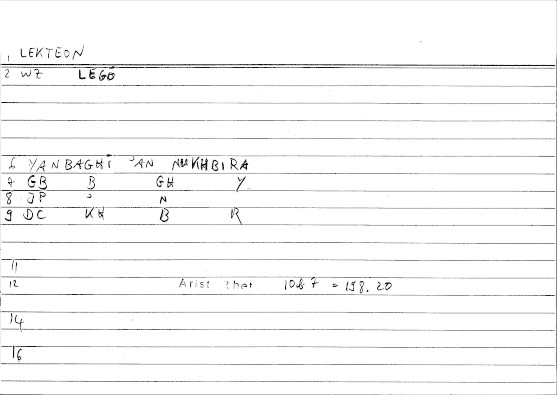 1 LEKTEON
2 WZ LEGŌ
6 YANBAGHĪ 'AN NUKHBIRA
7 GB B GH Y
8 JP ' N
9 DC KH B R
11
12 Arist Rhet 10b7 = 198.20
14
16